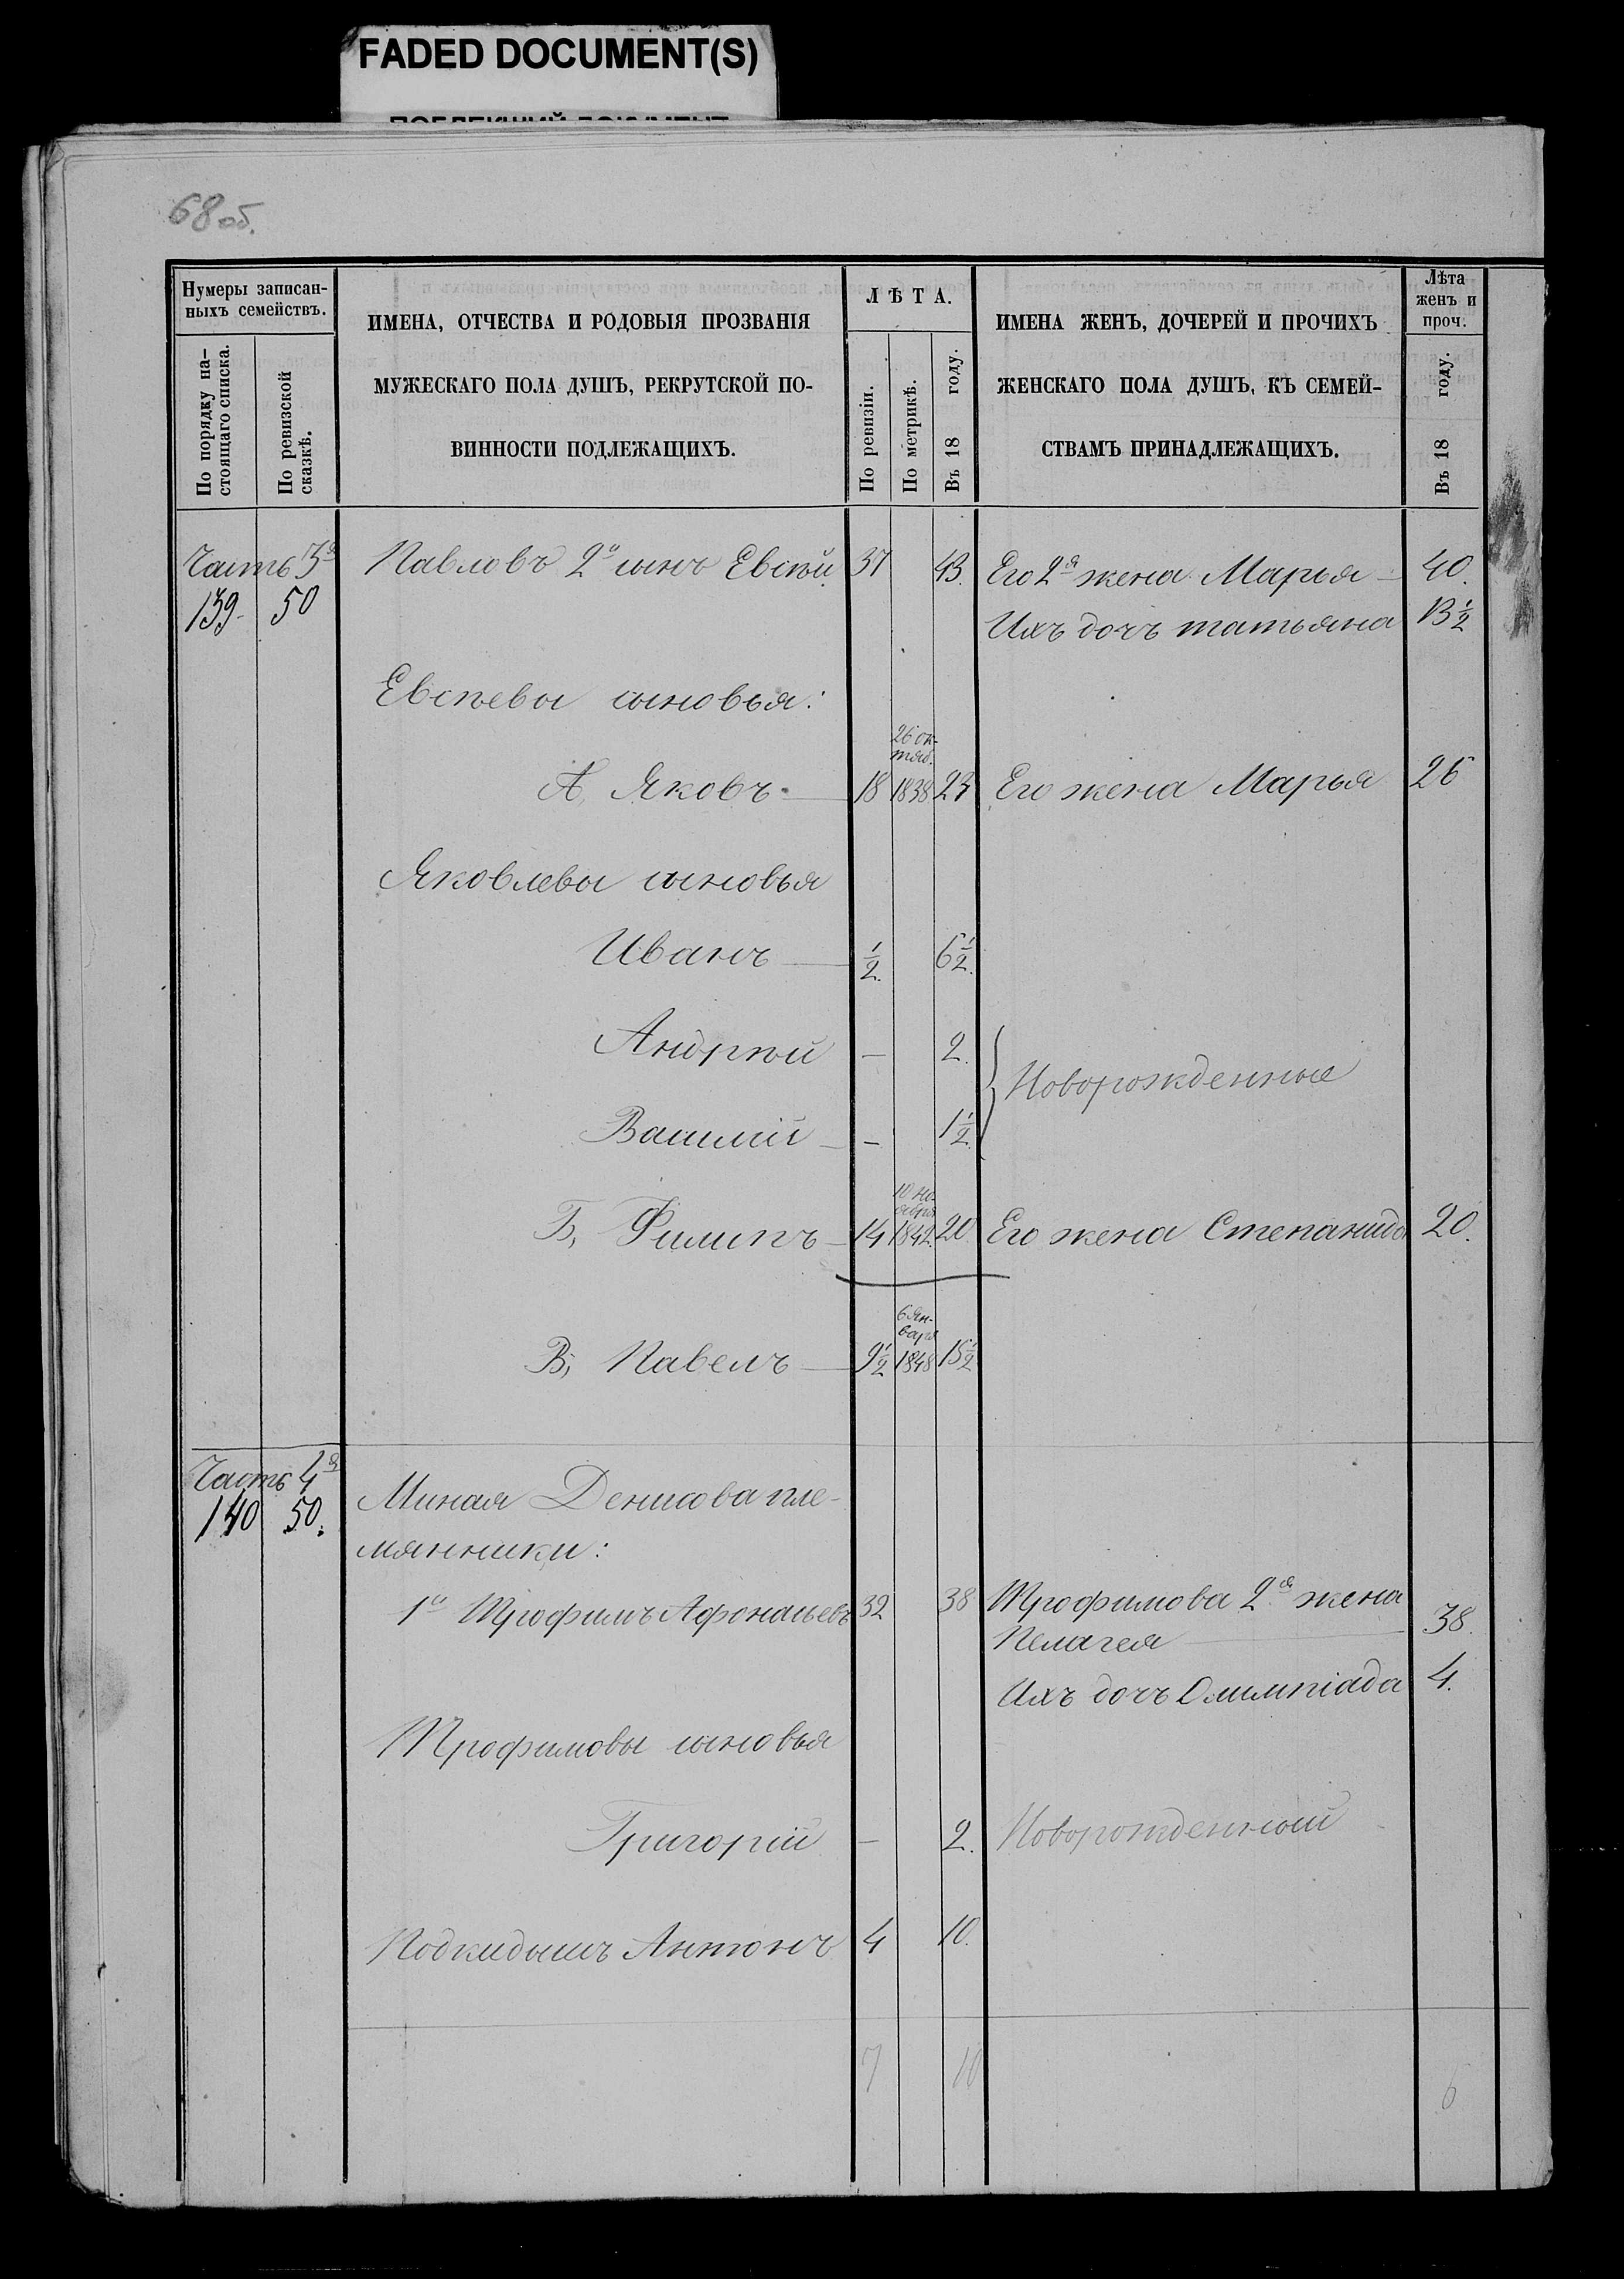 FADED DOCUMENT(S)
68 об.
Нумеры записан-
ныхъ семействъ.
По порядку на-
стоящаго списка.
По ревизской
сказкѣ.
ИМЕНА, ОТЧЕСТВА И РОДОВЫЯ ПРОЗВАНІЯ
МУЖЕСКАГО ПОЛА ДУШЪ, РЕКРУТСКОЙ ПО-
ВИННОСТИ ПОДЛЕЖАЩИХЪ.
ЛѢТА.
По ревизіи.
По метрикѣ.
Въ 18 году.
ИМЕНА ЖЕНЪ, ДОЧЕРЕЙ И ПРОЧИХЪ
ЖЕНСКАГО ПОЛА ДУШЪ, КЪ СЕМЕЙ-
СТВАМЪ ПРИНАДЛЕЖАЩИХЪ.
Лѣта
женъ и
проч.
Въ 18 году.
Часть 3я Павловъ 2й сынъ Евсѣй 37 43. Его 2я жена Марья 40.
139 50 Ихъ дочь татьяна 13½
Евсѣевы сыновья:
26 ок-
тяб.
А, Яковъ 18 1838 23 Его жена Марья 26
Яковлевы сыновья
Иванъ ½. 6½.
Андрѣй — 2.
Новорожденные
Василій — 1½
10 но-
ября
Б, Филипъ 14 1842. 20. Его жена Степанида 20.
6 Ян-
варя
В, Павелъ 9½ 1848 15½
Часть 4я
140 50. Миная Денисова пле-
мянники:
1й Трофимъ Афонасьевъ 32 38 Трофимова 2я жена
Пелагея 38.
Ихъ дочь Олимпіада 4.
Трофимовы сыновья
Григорій — 2. Новорожденный
Подкидышъ Антонъ 4 10.
7 10 6